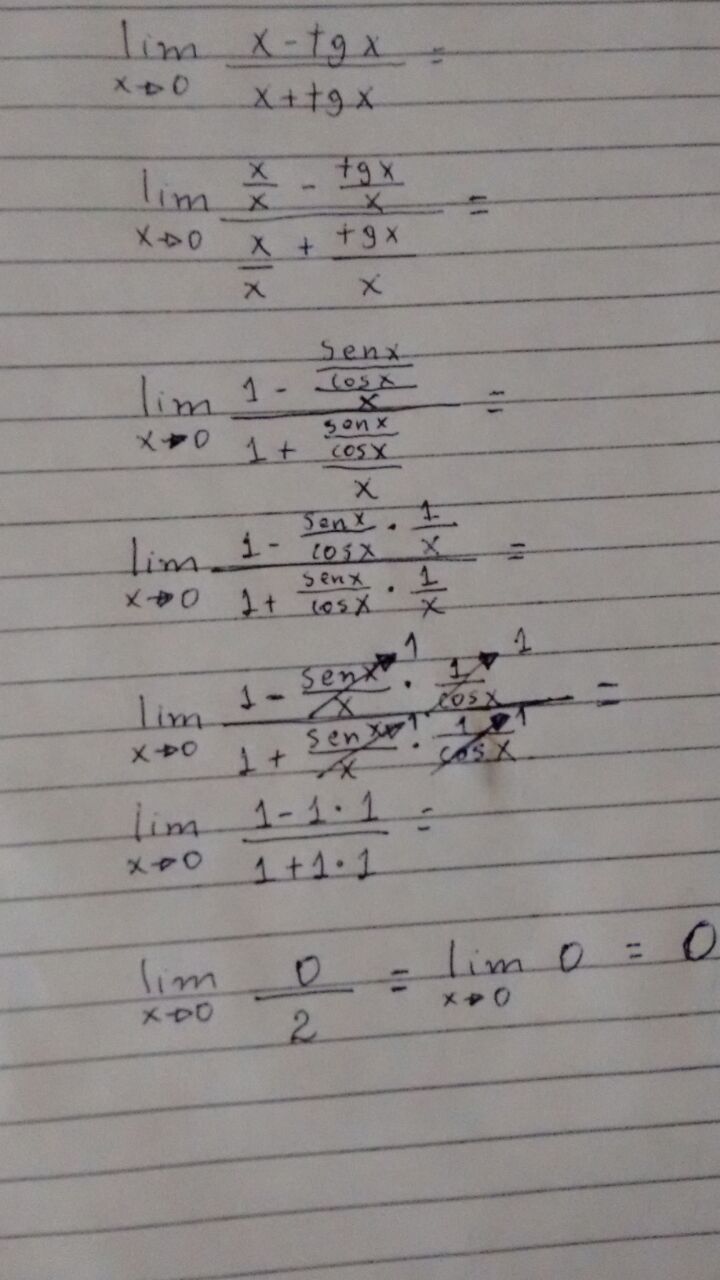 lim x→0 (x - tg x)/(x + tg x) =
lim x→0 (x/x - tg x/x)/(x/x + tg x/x) =
lim x→0 (1 - (sen x/cos x)/x)/(1 + (sen x/cos x)/x) =
lim x→0 (1 - sen x/cos x · 1/x)/(1 + sen x/cos x · 1/x) =
lim x→0 (1 - sen x/x →1 · 1/cos x →1)/(1 + sen x/x →1 · 1/cos x →1) =
lim x→0 (1 - 1 · 1)/(1 + 1 · 1) =
lim x→0 0/2 = lim x→0 0 = 0